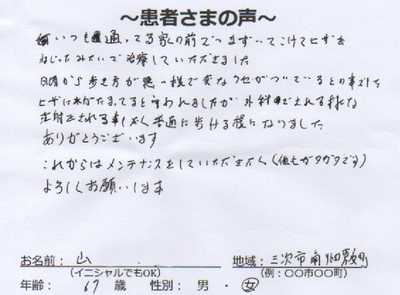 ～患者さまの声～
いつも通ってる家の前でつまずいてこけてヒザを
ねじったみたいで治療していただきました
日頃から歩き方が悪い様で変なクセがついているとの事でした
ヒザに水がたまってると言われましたが外科でされる様な
注射をされる事なく普通に歩ける様になりました
ありがとうございます
これからはメンテナンスをしていただきたく(他もガタガタです)
よろしくお願いします
お名前: 山 地域: 三次市南畑敷町
(イニシャルでもOK) (例:○○市○○町)
年齢: 67 歳 性別: 男・女